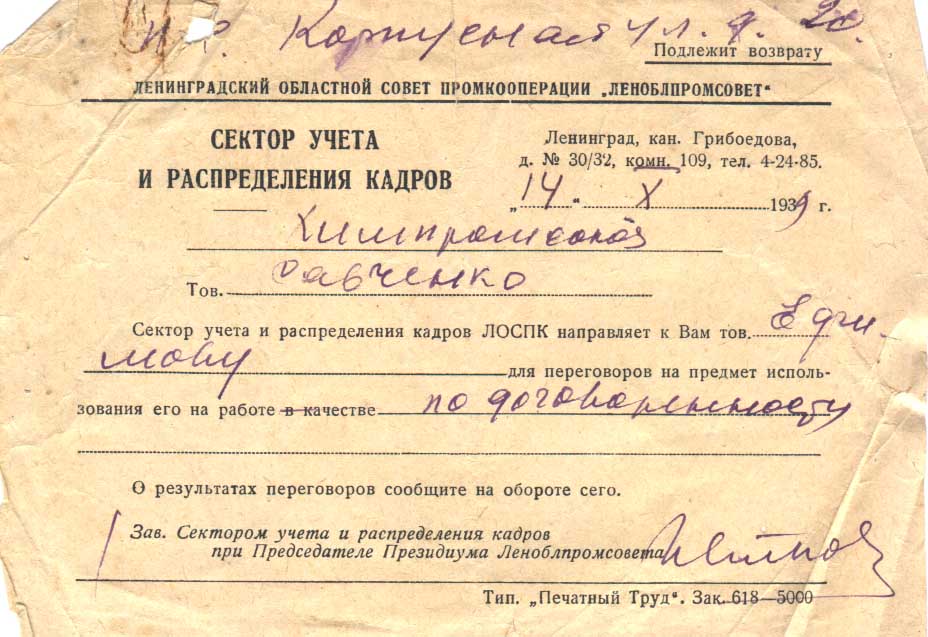 Корпусная ул. д. 20.
Подлежит возврату
ЛЕНИНГРАДСКИЙ ОБЛАСТНОЙ СОВЕТ ПРОМКООПЕРАЦИИ „ЛЕНОБЛПРОМСОВЕТ“
СЕКТОР УЧЕТА
И РАСПРЕДЕЛЕНИЯ КАДРОВ
Ленинград, кан. Грибоедова,
д. № 30/32, комн. 109, тел. 4-24-85.
„14“ X 1939 г.
Химпромсоюз
Тов. Савченко
Сектор учета и распределения кадров ЛОСПК направляет к Вам тов. Ефи-
мову для переговоров на предмет исполь-
зования его на работе в качестве по договоренности
О результатах переговоров сообщите на обороте сего.
Зав. Сектором учета и распределения кадров
при Председателе Президиума Леноблпромсовета
Тип. „Печатный Труд“. Зак. 618—5000